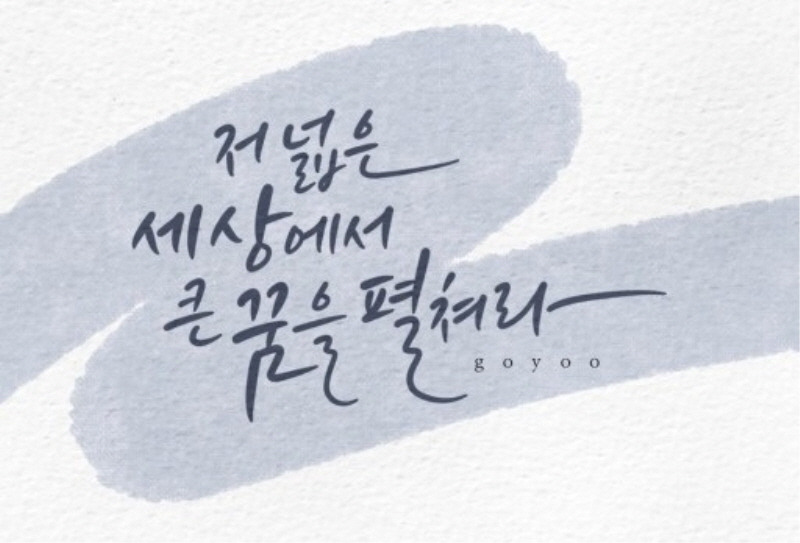 저 넓은
세상에서
큰 꿈을 펼쳐라
goyoo